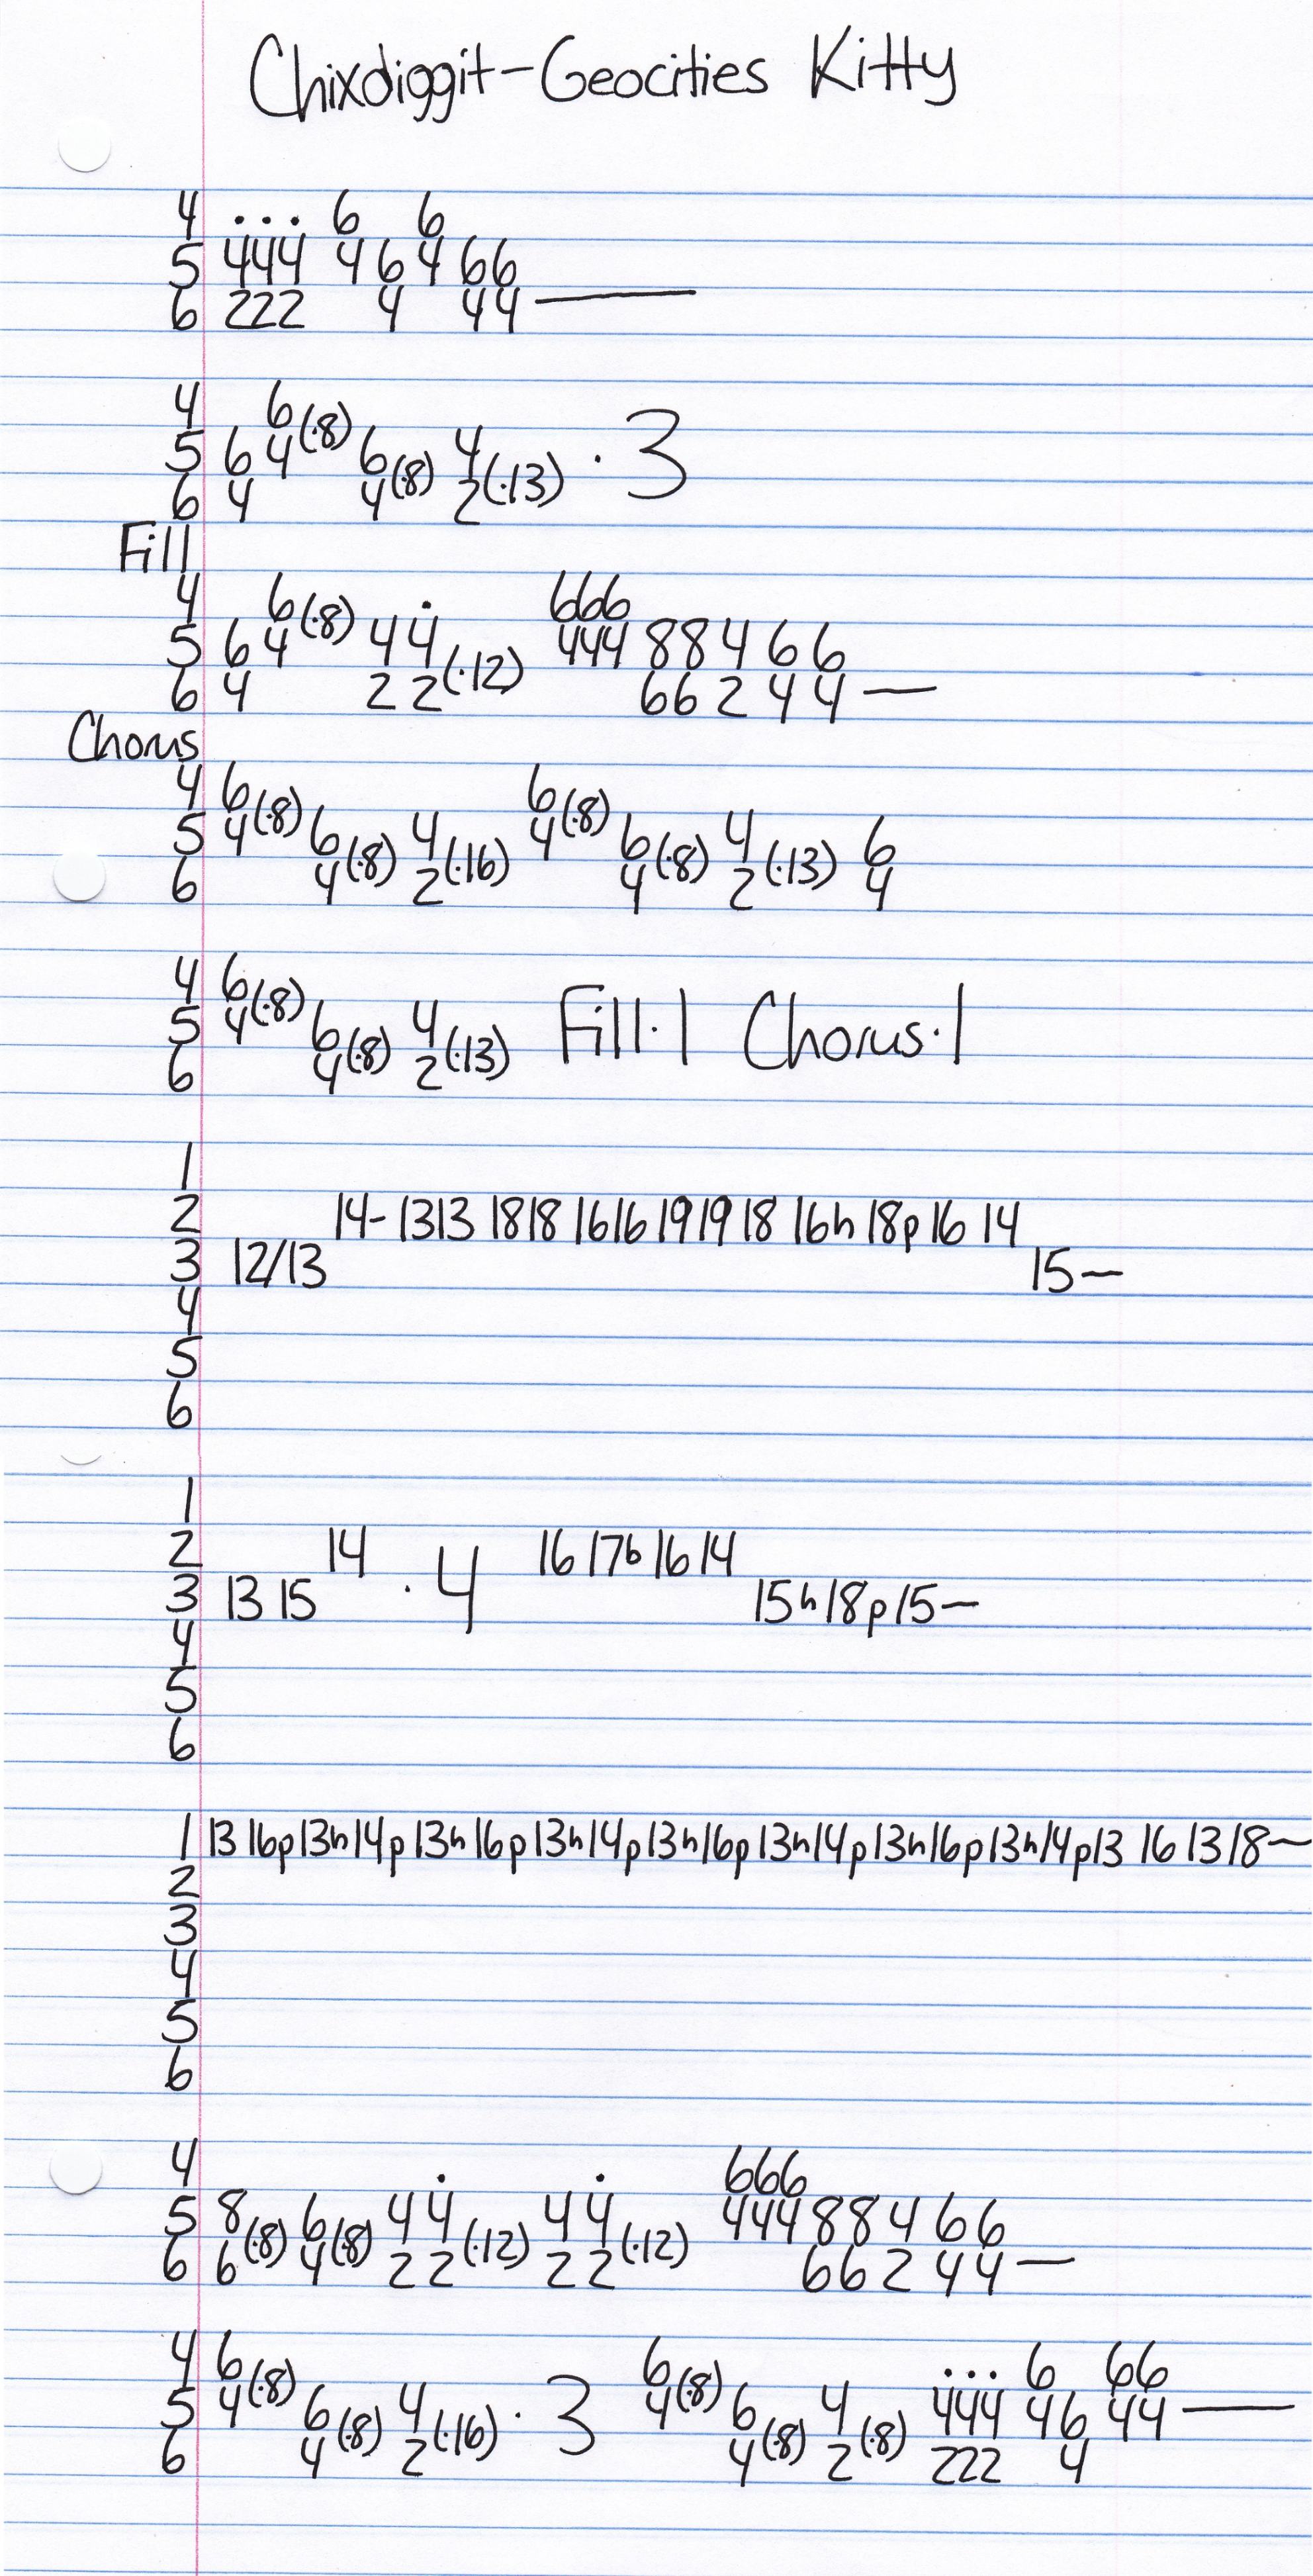 Chixdiggit-Geocities Kitty
4 ... 6 6
5 444 4 6 4 66
6 222 4 44 —
4 6(·8)
5 6 4 6(·8) 4 · 3
6 4 4 2(·13)
Fill
4 6(·8) . 666
5 6 4 44 444 88 4 6 6
6 4 2 2(·12) 66 2 4 4 —
Chorus
4 6(·8) 6(·8)
5 4 6(·8) 4(·16) 4 6(·8) 4(·13) 6
6 4 2 4 2 4
4 6(·8)
5 4 6(·8) 4 Fill·1 Chorus·1
6 4 2(·13)
1
2 14- 1313 1818 1616 1919 18 16h 18p 16 14
3 12/13 15—
4
5
6
1
2 14 · 4 16 17b 16 14
3 13 15 15h18p15—
4
5
6
1 13 16p13h14p13h16p13h14p13h16p13h14p13h16p13h14p13 16 13 18—
2
3
4
5
6
4 . . 666
5 8(·8) 6(·8) 44 44 444 88 4 66
6 6 4 22(·12) 22(·12) 66 2 44 —
4 6(·8) 6(·8) ... 6 66
5 4 6(·8) 4(·16) · 3 4 6(·8) 4(·8) 444 46 44 —
6 4 2 4 2 222 4